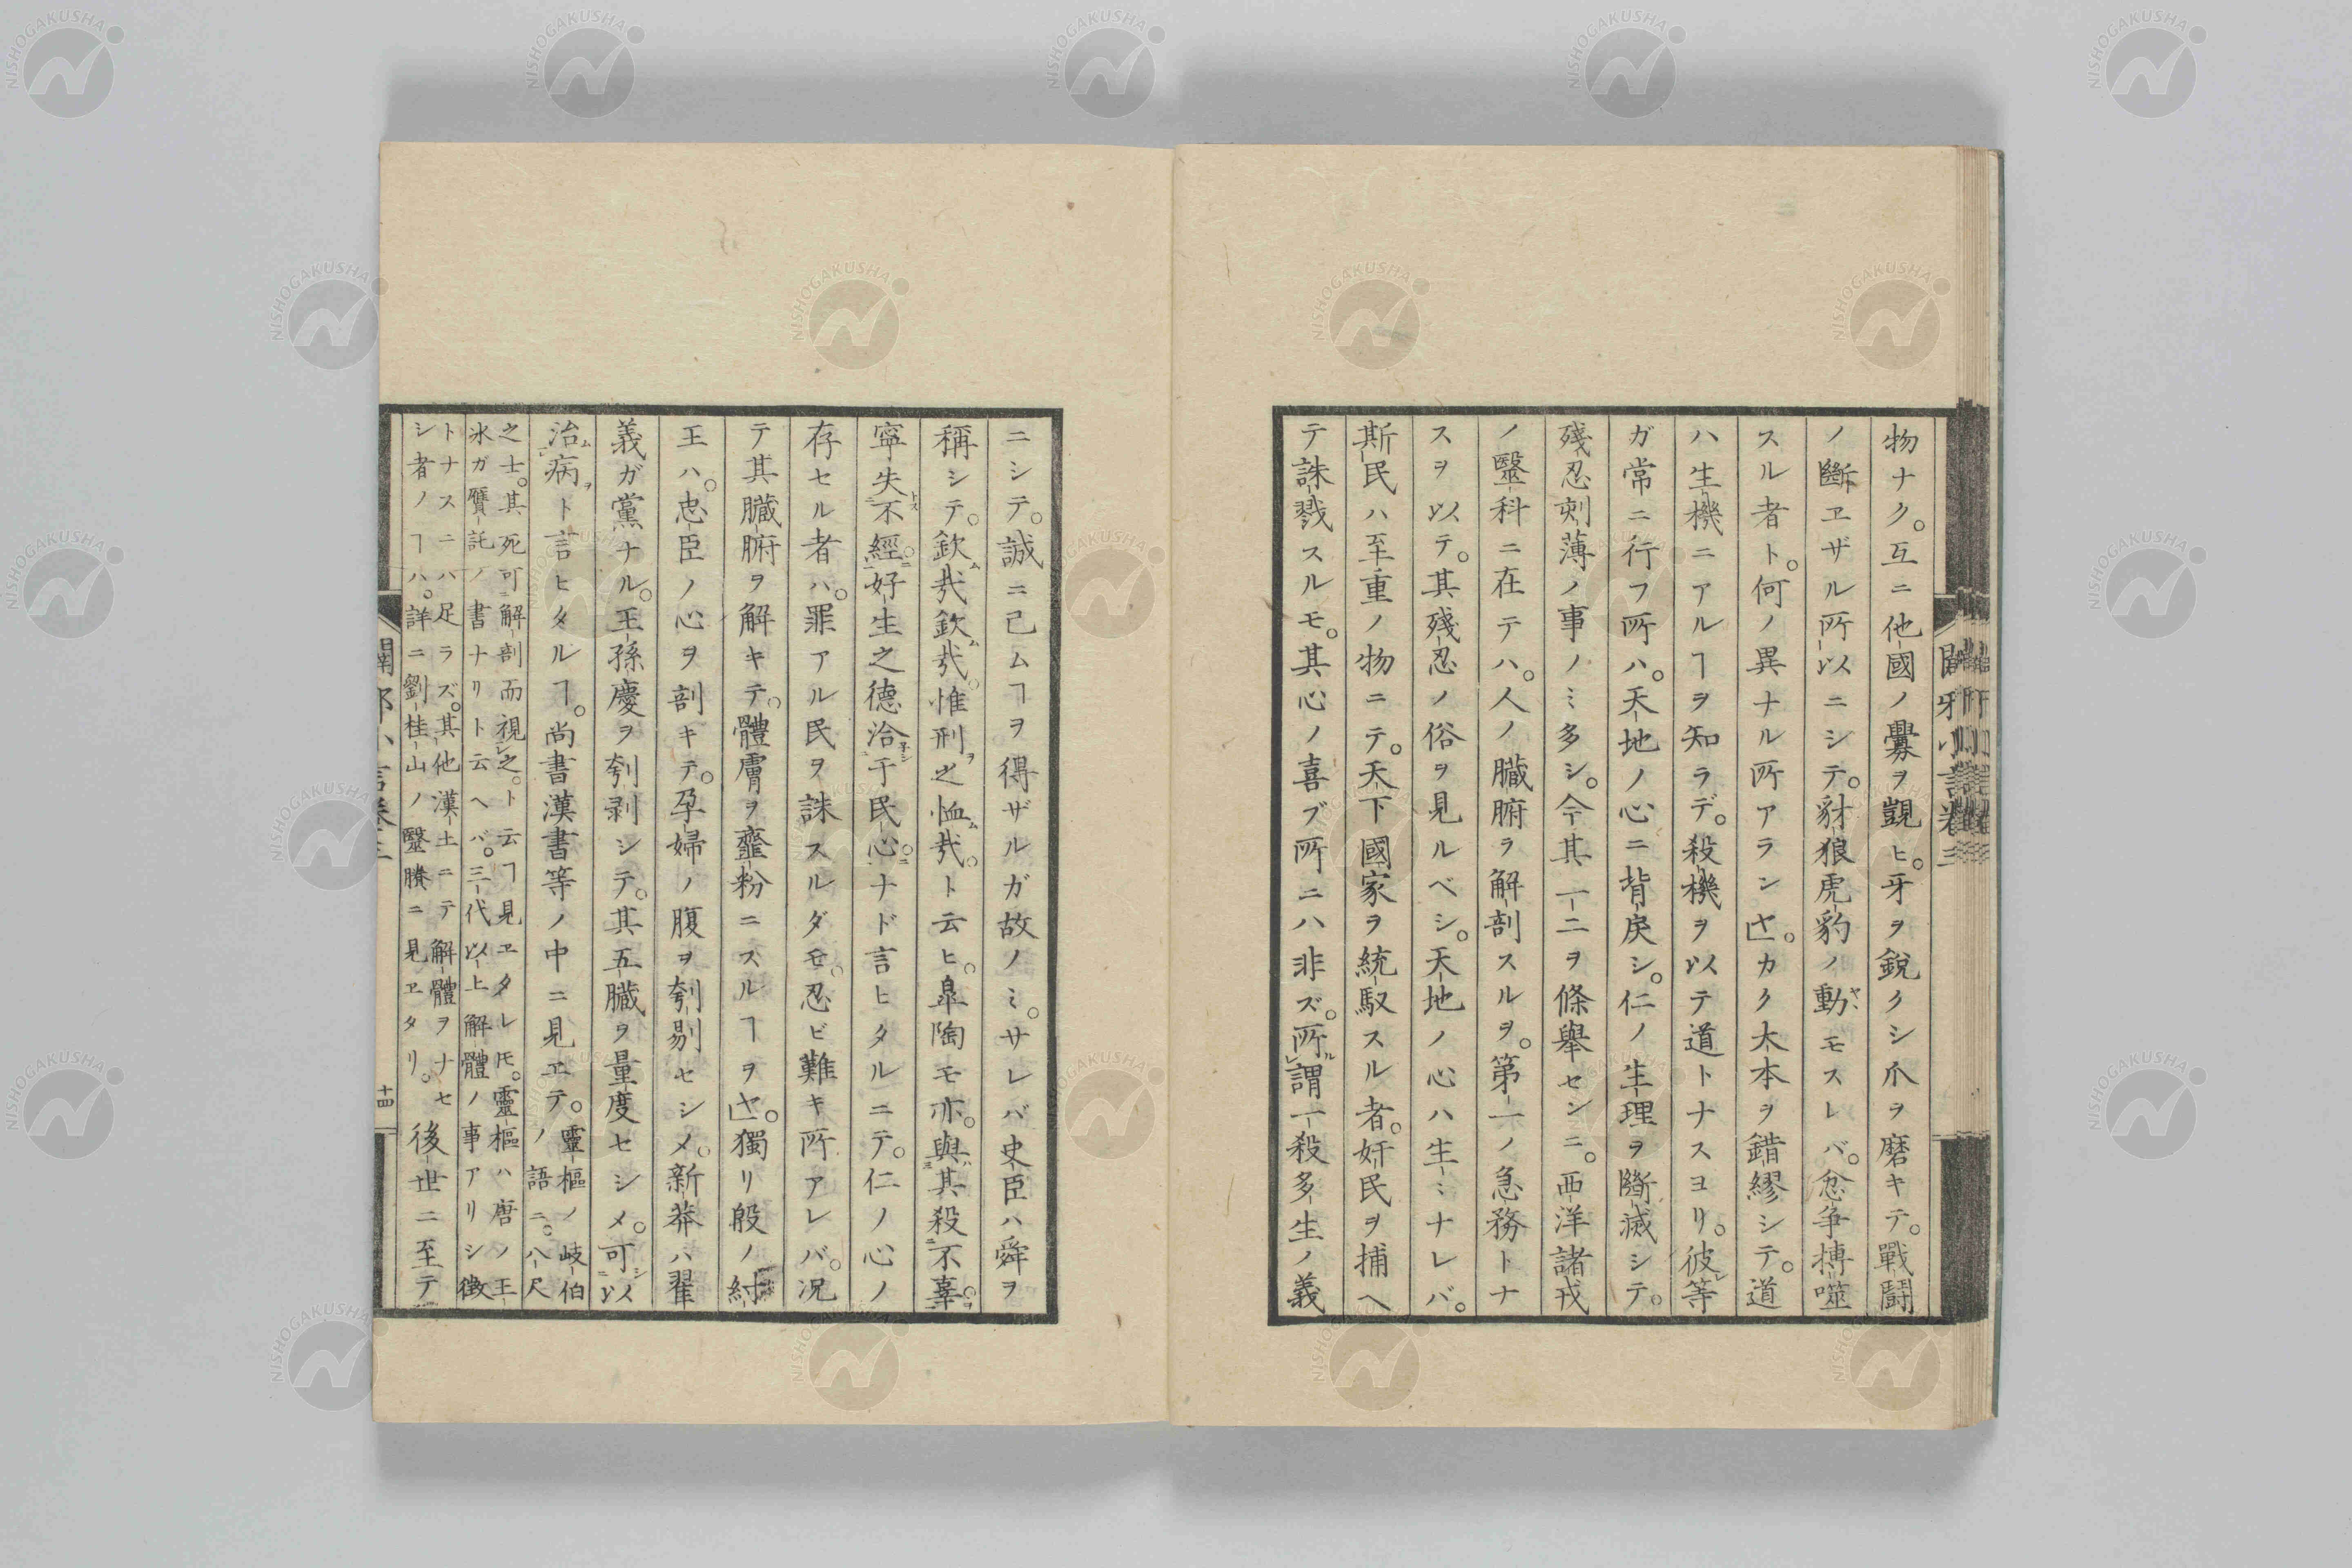 物ナク。互ニ他國ノ釁ヲ覬ヒ。牙ヲ銳クシ爪ヲ磨キテ。戰鬪
ノ斷ヱザル所以ニシテ。豺狼虎豹ノ動モスレバ。忿爭搏噬
スル者ト。何ノ異ナル所アランヤ。カク大本ヲ錯繆シテ。道
ハ生機ニアルヿヲ知ラデ。殺機ヲ以テ道トナスヨリ。彼等
ガ常ニ行フ所ハ。天地ノ心ニ背戾シ。仁ノ生理ヲ斷滅シテ。
殘忍刻薄ノ事ノミ多シ。今其一二ヲ條舉センニ。西洋諸戎
ノ毉科ニ在テハ。人ノ臟腑ヲ解剖スルヲ。第一ノ急務トナ
スヲ以テ。其殘忍ノ俗ヲ見ルベシ。天地ノ心ハ生ミナレバ。
斯民ハ至重ノ物ニテ。天下國家ヲ統馭スル者。奸民ヲ捕ヘ
テ誅戮スルモ。其心ノ喜ブ所ニハ非ズ。所謂一殺多生ノ義
ニシテ。誠ニ已ムヿヲ得ザルガ故ノミ。サレバ史臣ハ舜ヲ
稱シテ。欽哉欽哉。惟刑之恤哉。ト云ヒ。皐陶モ亦。與其殺不辜。
寧失不經。好生之德洽于民心。ナド言ヒタルニテ。仁ノ心ノ
存セル者ハ。罪アル民ヲ誅スルダモ。忍ビ難キ所アレバ。況
テ其臟腑ヲ解キテ。體膚ヲ韲粉ニスルヿヲヤ。獨リ殷ノ紂
王ハ。忠臣ノ心ヲ剖キテ。孕婦ノ腹ヲ刳剔セシメ。新莽ハ翟
義ガ黨ナル。王孫慶ヲ刳剥シテ。其五臟ヲ量度セシメ。可以
治病ト言ヒタルヿ。尚書漢書等ノ中ニ見ヱテ。靈樞ノ岐伯
ノ語ニ。八尺
之士。其死可解剖而視之。ト云ヿ見ヱタレ𪜈。靈樞ハ唐ノ王
氷ガ贋託ノ書ナリト云ヘバ。三代以上解體ノ事アリシ徵
トナスニハ足ラズ。其他漢土ニテ解體ヲナセ
シ者ノヿハ。詳ニ劉桂山ノ毉賸ニ見ヱタリ。
後世ニ至テ
闢邪小言卷三
十四
NISHOGAKUSHA